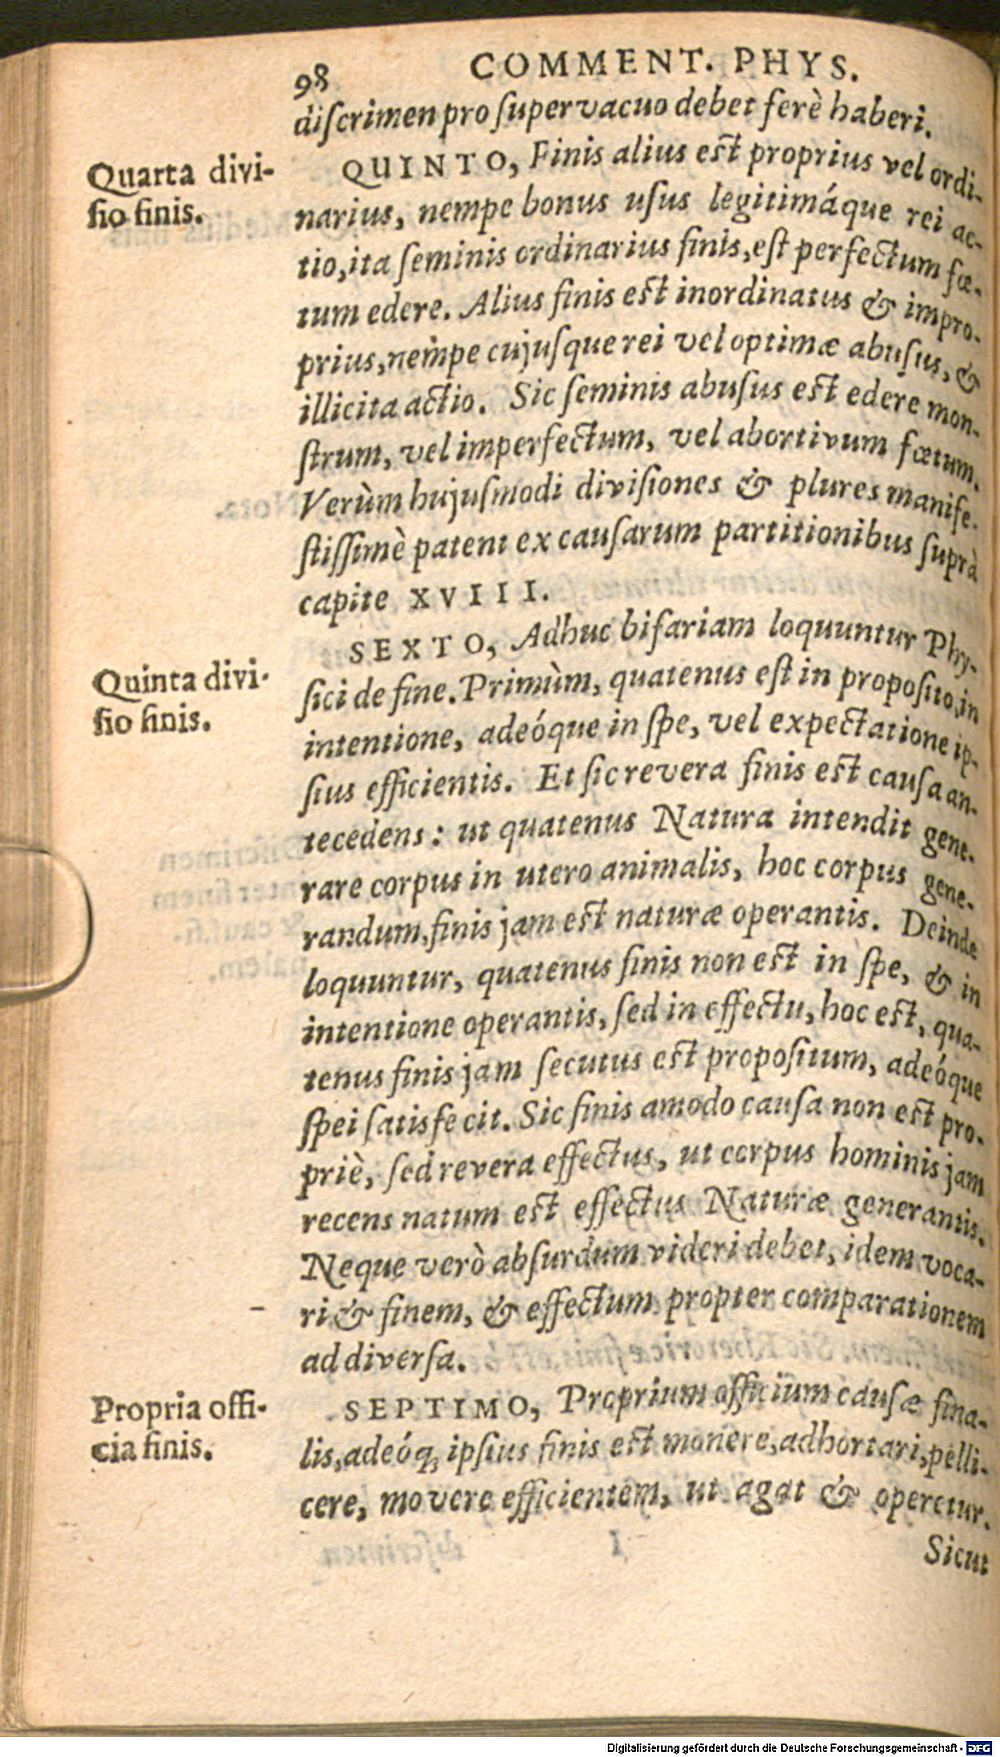 98 COMMENT. PHYS.
diſcrimen pro ſupervacuo debet ferè haberi.
Quarta divi-
ſio finis.
QUINTO, Finis alius eſt proprius vel ordi-
narius, nempe bonus uſus legitimáque rei ac-
tio, ita ſeminis ordinarius finis, eſt perfectum fœ-
tum edere. Alius finis eſt inordinatus & impro-
prius, nempe cujuſque rei vel optimæ abuſus, &
illicita actio. Sic ſeminis abuſus eſt edere mon-
ſtrum, vel imperfectum, vel abortivum fœtum.
Verùm hujuſmodi diviſiones & plures manife-
ſtiſſimè patent ex cauſarum partitionibus ſuprà
capite XVIII.
Quinta divi-
ſio finis.
SEXTO, Adhuc bifariam loquuntur Phy-
ſici de fine. Primùm, quatenus eſt in propoſito, in
intentione, adeóque in ſpe, vel expectatione ip-
ſius efficientis. Et ſic revera finis eſt cauſa an-
tecedens: ut quatenus Natura intendit gene-
rare corpus in utero animalis, hoc corpus gene-
randum, finis jam eſt naturæ operantis. Deinde
loquuntur, quatenus finis non eſt in ſpe, & in
intentione operantis, ſed in effectu, hoc eſt, qua-
tenus finis jam ſecutus eſt propoſitum, adeóque
ſpei ſatisfecit. Sic finis amodo cauſa non eſt pro-
priè, ſed revera effectus, ut corpus hominis jam
recens natum eſt effectus Naturæ generantis.
Neque verò abſurdum videri debet, idem voca-
ri & finem, & effectum propter comparationem
ad diverſa.
Propria offi-
cia finis.
SEPTIMO, Proprium officium cauſæ fina-
lis, adeóq; ipſius finis eſt monere, adhortari, pelli-
cere, movere efficientem, ut agat & operetur.
Sicut
Digitalisierung gefördert durch die Deutsche Forschungsgemeinschaft - DFG